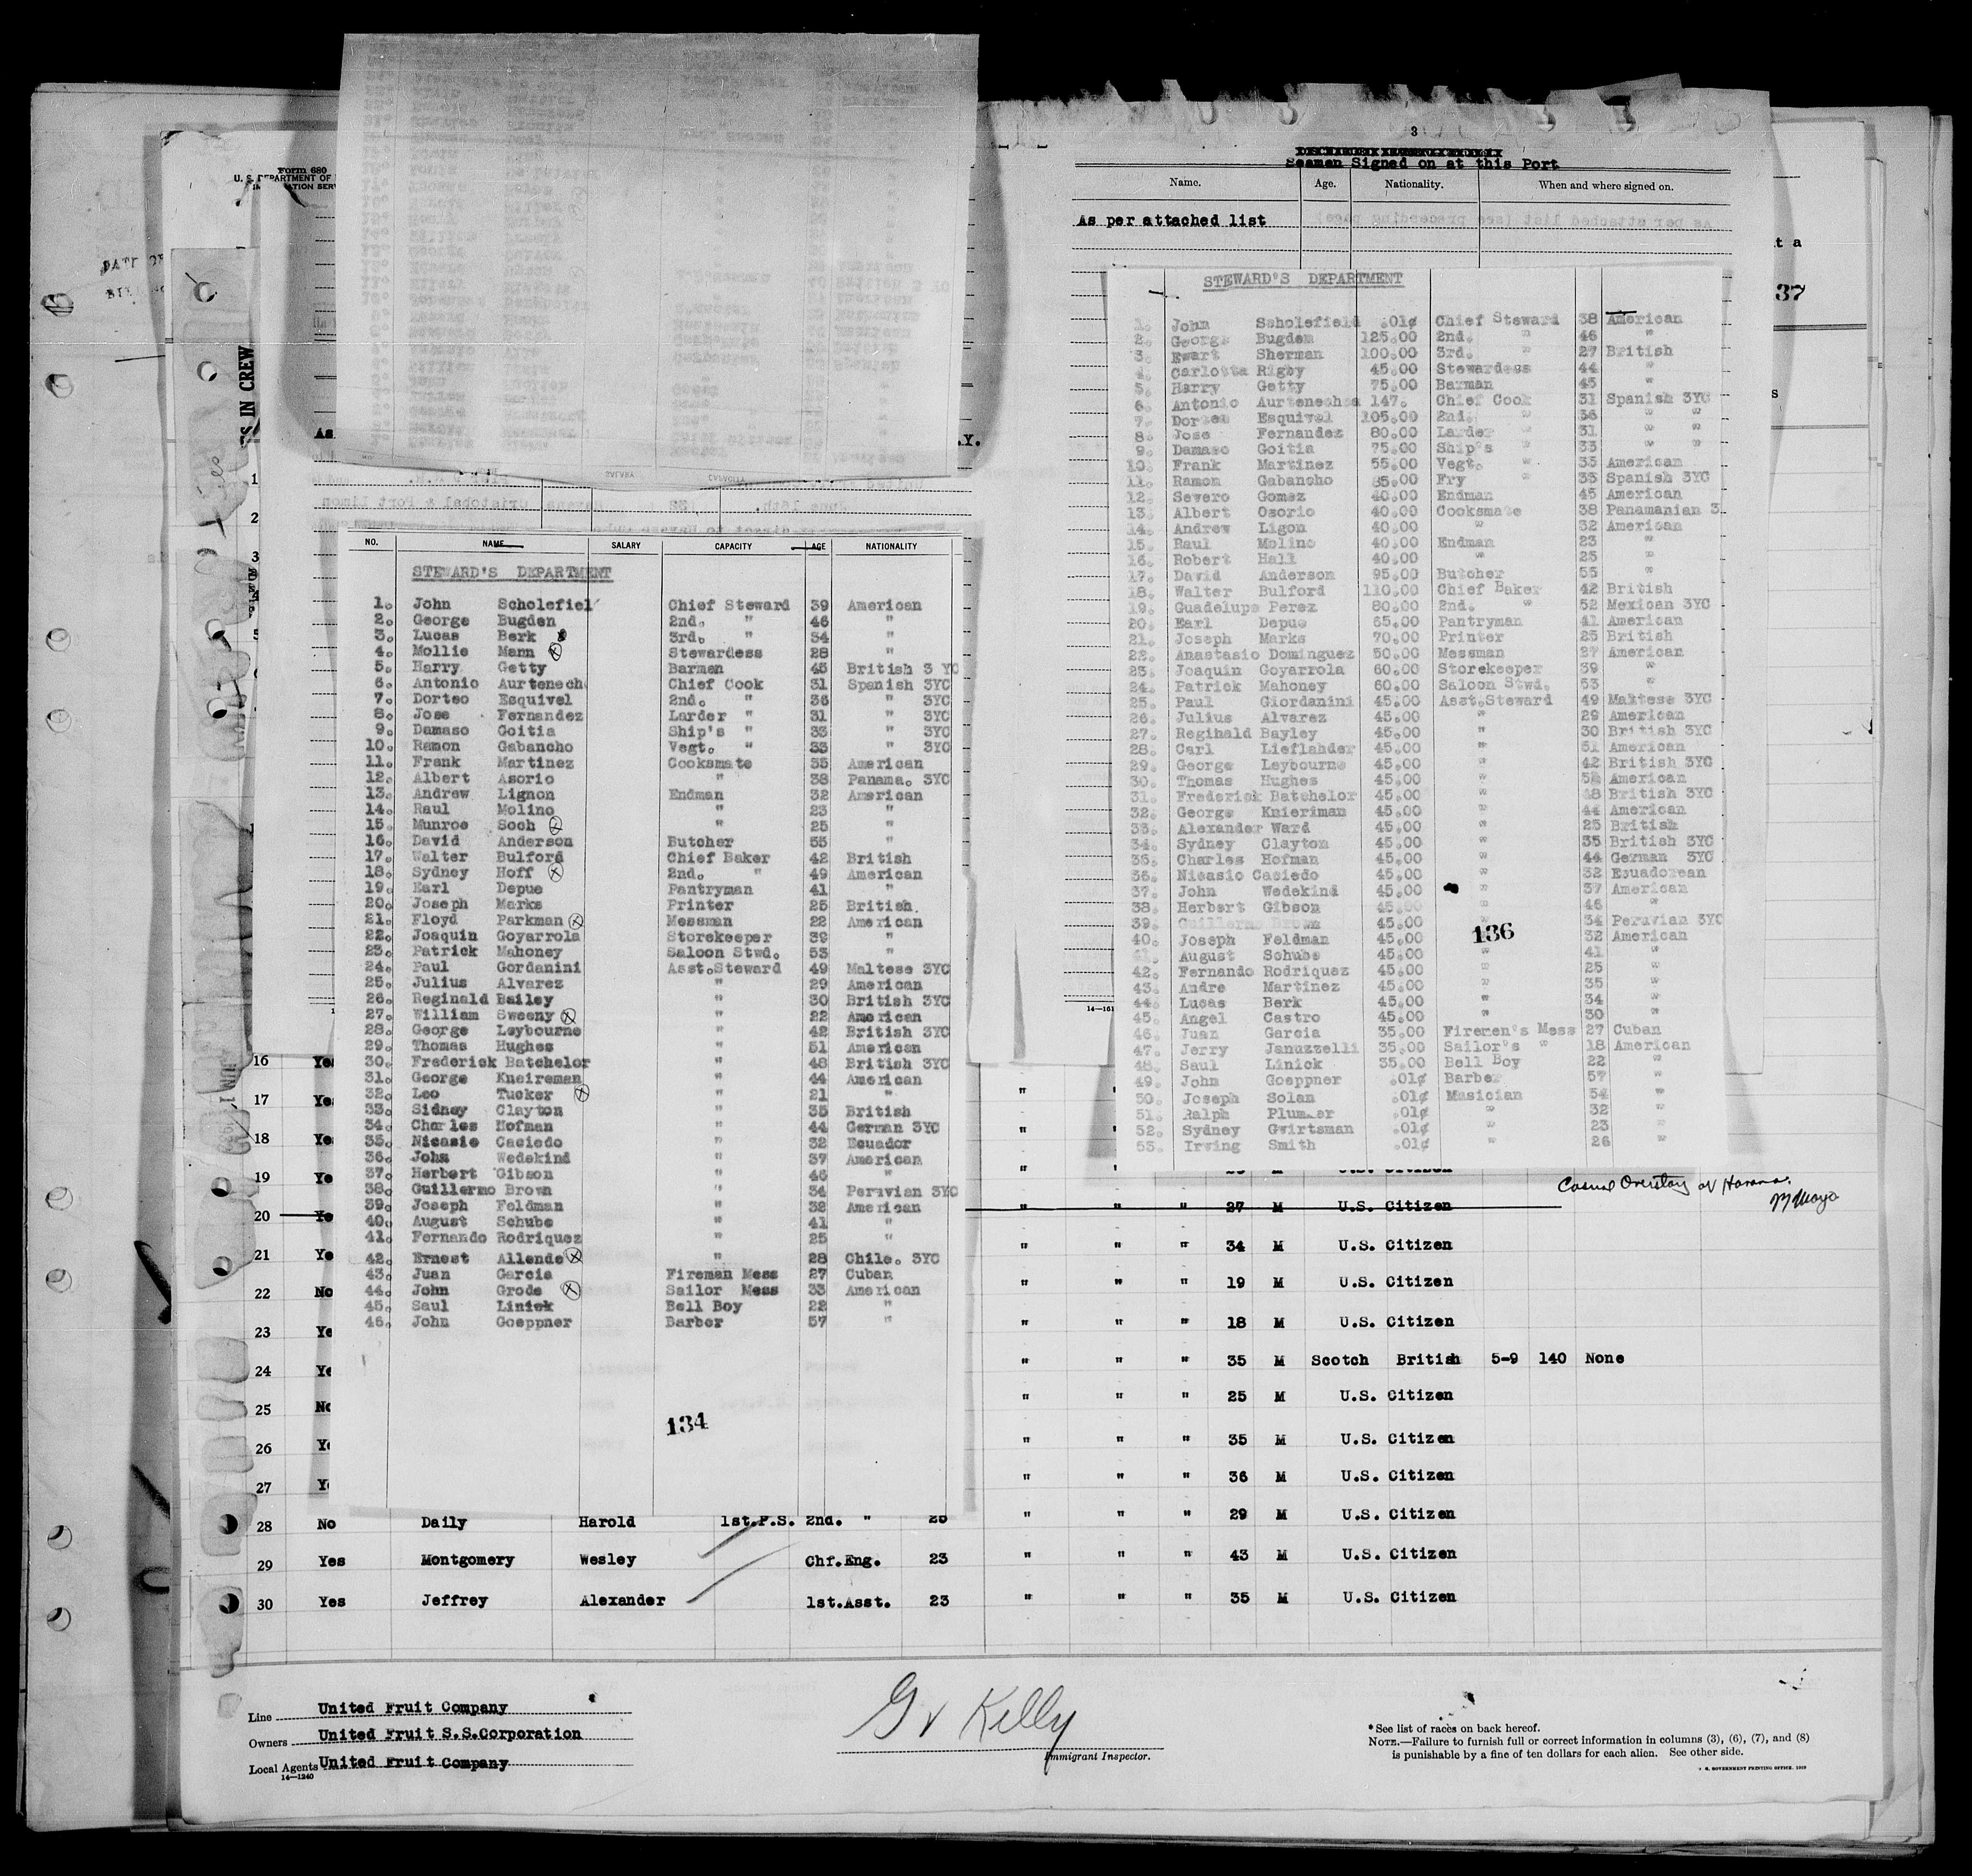 Form 680
U. S. DEPARTMENT OF
3
Seamen Signed on at this Port
Name. Age. Nationality. When and where signed on.
As per attached list
37
NO. NAME SALARY CAPACITY AGE NATIONALITY
STEWARD'S DEPARTMENT
1. John Scholefiel Chief Steward 39 American
2. George Bugden 2nd. " 46 "
3. Lucas Berk 3rd. " 34 "
4. Mollie Mann Stewardess 28 "
5. Harry Getty Barman 45 British 3 YC
6. Antonio Aurtenech Chief Cook 31 Spanish 3YC
7. Dorteo Esquivel 2nd. " 36 " 3YC
8. Jose Fernandez Larder " 31 " 3YC
9. Damaso Goitia Ship's " 33 " 3YC
10. Ramon Gabancho Vegt. " 33 " 3YC
11. Frank Martinez Cooksmate 35 American
12. Albert Asorio " 38 Panama. 3YC
13. Andrew Lignon Endman 32 American
14. Raul Molino " 23 "
15. Munroe Soch " 25 "
16. David Anderson Butcher 55 "
17. Walter Bulford Chief Baker 42 British
18. Sydney Hoff 2nd. " 49 American
19. Earl Depue Pantryman 41 "
20. Joseph Marks Printer 25 British
21. Floyd Parkman Messman 22 American
22. Joaquin Goyarrola Storekeeper 39 "
23. Patrick Mahoney Saloon Stwd. 53 "
24. Paul Gordanini Asst.Steward 49 Maltese 3YC
25. Julius Alvarez " 29 American
26. Reginald Bailey " 30 British 3YC
27. William Sweeny " 22 American
28. George Leybourne " 42 British 3YC
29. Thomas Hughes " 51 American
30. Frederick Batchelor " 48 British 3YC
31. George Kneireman " 44 American
32. Leo Tucker " 21 "
33. Sidney Clayton " 35 British
34. Charles Hofman " 44 German 3YC
35. Nicasio Caciedo " 32 Ecuador
36. John Wedekind " 37 American
37. Herbert Gibson " 46 "
38. Guillermo Brown " 34 Peruvian 3YC
39. Joseph Feldman " 32 American
40. August Schube " 41 "
41. Fernando Rodriquez " 25 "
42. Ernest Allende " 28 Chile. 3YC
43. Juan Garcia Fireman Mess 27 Cuban
44. John Grode Sailor Mess 33 American
45. Saul Linick Bell Boy 22 "
46. John Goeppner Barber 57 "
134
STEWARD'S DEPARTMENT
1. John Scholefield .01¢ Chief Steward 38 American
2. George Bugden 125.00 2nd. " 46 "
3. Ewart Sherman 100.00 3rd. " 27 British
4. Carlotta Rigby 45.00 Stewardess 44 "
5. Harry Getty 75.00 Barman 45 "
6. Antonio Aurtenechea 147. Chief Cook 31 Spanish 3YC
7. Dorteo Esquivel 105.00 2nd. " 36 " "
8. Jose Fernandez 80.00 Larder " 31 " "
9. Damaso Goitia 75.00 Ship's " 33 " "
10. Frank Martinez 55.00 Vegt. " 35 American
11. Ramon Gabancho 85.00 Fry " 33 Spanish 3YC
12. Severo Gomez 40.00 Endman 45 American
13. Albert Osorio 40.00 Cooksmate 38 Panamanian 3
14. Andrew Ligon 40.00 " 32 American
15. Raul Molino 40.00 Endman 23 "
16. Robert Hall 40.00 " 25 "
17. David Anderson 95.00 Butcher 55 "
18. Walter Bulford 110.00 Chief Baker 42 British
19. Guadelupe Perez 80.00 2nd. " 52 Mexican 3YC
20. Earl Depue 65.00 Pantryman 41 American
21. Joseph Marks 70.00 Printer 25 British
22. Anastasio Dominguez 50.00 Messman 27 American
23. Joaquin Goyarrola 60.00 Storekeeper 39 "
24. Patrick Mahoney 60.00 Saloon Stwd. 53 "
25. Paul Giordanini 45.00 Asst.Steward 49 Maltese 3YC
26. Julius Alvarez 45.00 " 29 American
27. Reginald Bayley 45.00 " 30 British 3YC
28. Carl Lieflander 45.00 " 51 American
29. George Leybourne 45.00 " 42 British 3YC
30. Thomas Hughes 45.00 " American
31. Frederick Batchelor 45.00 " 48 British 3YC
32. George Knieriman 45.00 " 44 American
33. Alexander Ward 45.00 " 25 British
34. Sydney Clayton 45.00 " 35 British 3YC
35. Charles Hofman 45.00 " 44 German 3YC
36. Nicasio Caciedo 45.00 " 32 Ecuadorean
37. John Wedekind 45.00 " 37 American
38. Herbert Gibson 45.00 " 46 "
39. Guillermo Brown 45.00 " 34 Peruvian 3YC
40. Joseph Feldman 45.00 32 American
136
41. August Schube 45.00 " 41 "
42. Fernando Rodriquez 45.00 " 25 "
43. Andre Martinez 45.00 " 35 "
44. Lucas Berk 45.00 " 34 "
45. Angel Castro 45.00 " 30 "
46. Juan Garcia 35.00 Firemen's Mess 27 Cuban
47. Jerry Januzzelli 35.00 Sailor's " 18 American
48. Saul Linick 35.00 Bell Boy 22 "
49. John Goeppner .01¢ Barber 57 "
50. Joseph Solan .01¢ Musician 54 "
51. Ralph Plummer .01¢ " 32 "
52. Sydney Gwirtsman .01¢ " 23 "
53. Irving Smith .01¢ " 26 "
Casual Overstay at Havana.
16
17 " "
18
19
20 " " " 27 M U.S. Citizen
21 " " " 34 M U.S. Citizen
22 No " " " 19 M U.S. Citizen
23 " " " 18 M U.S. Citizen
24 " " " 35 M Scotch British 5-9 140 None
25 " " " 25 M U.S. Citizen
26 " " " 35 M U.S. Citizen
27 " " " 36 M U.S. Citizen
28 No Daily Harold 1st.P.S. 2nd. " " " " 29 M U.S. Citizen
29 Yes Montgomery Wesley Chf.Eng. 23 " " " 43 M U.S. Citizen
30 Yes Jeffrey Alexander 1st.Asst. 23 " " " 35 M U.S. Citizen
Line United Fruit Company
Owners United Fruit S.S.Corporation
Local Agents United Fruit Company
14—1240
G V Kelly
Immigrant Inspector.
*See list of races on back hereof.
NOTE.—Failure to furnish full or correct information in columns (3), (6), (7), and (8)
is punishable by a fine of ten dollars for each alien. See other side.
GOVERNMENT PRINTING OFFICE